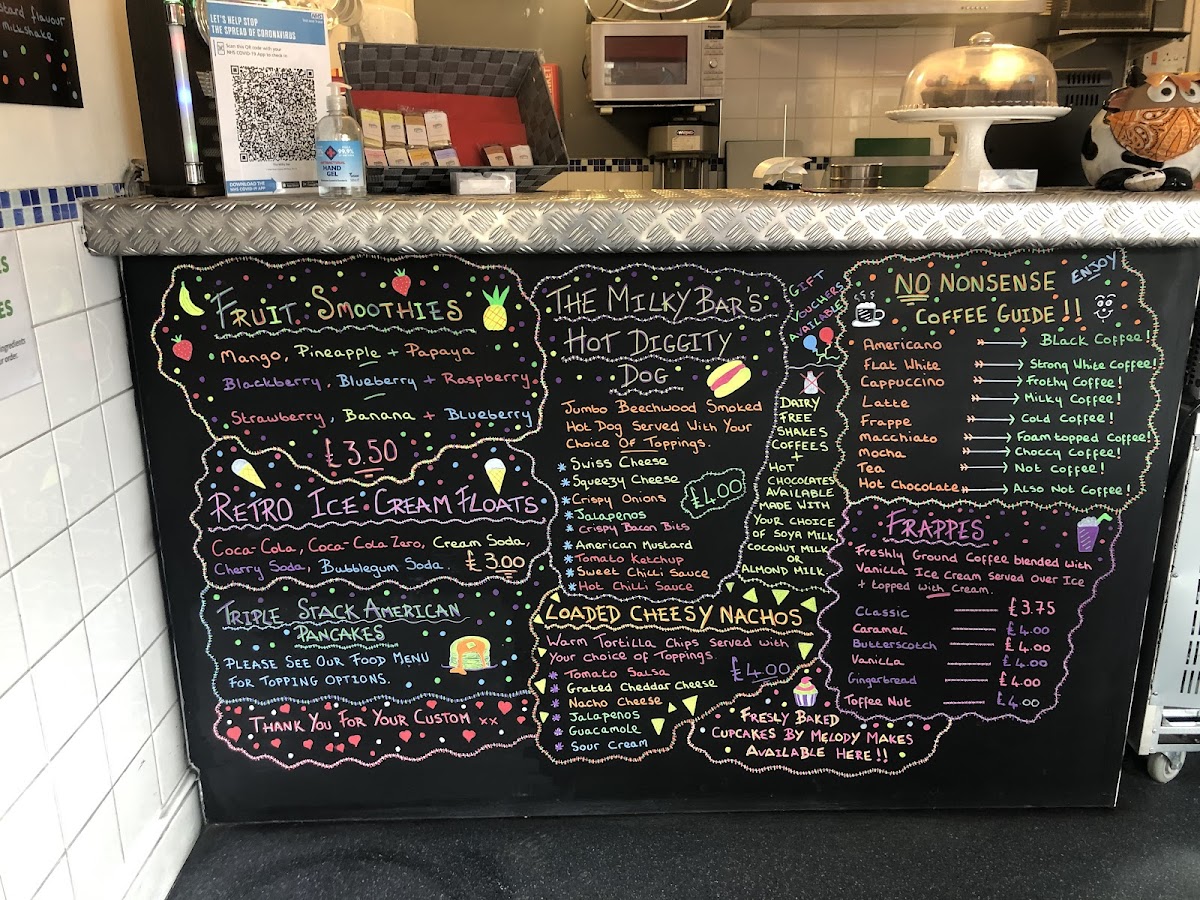 stard flavour
milkshake
LET'S HELP STOP
THE SPREAD OF CORONAVIRUS
NHS
Scan this QR code with your
NHS COVID-19 App to check in
DOWNLOAD THE
HAND
GEL
99.9%
ES
ES
ingredients
r order.
FRUIT SMOOTHIES
MANGO, PINEAPPLE + PAPAYA
BLACKBERRY, BLUEBERRY + RASPBERRY
STRAWBERRY, BANANA + BLUEBERRY
£3.50
RETRO ICE CREAM FLOATS
COCA-COLA, COCA-COLA ZERO, CREAM SODA,
CHERRY SODA, BUBBLEGUM SODA. £3.00
TRIPLE STACK AMERICAN
PANCAKES
PLEASE SEE OUR FOOD MENU
FOR TOPPING OPTIONS.
THANK YOU FOR YOUR CUSTOM xx
THE MILKY BAR'S
HOT DIGGITY
DOG
JUMBO BEECHWOOD SMOKED
HOT DOG SERVED WITH YOUR
CHOICE OF TOPPINGS.
* SWISS CHEESE
* SQUEEZY CHEESE
* CRISPY ONIONS
* JALAPENOS
CRISPY BACON BITS
* AMERICAN MUSTARD
* TOMATO KETCHUP
* SWEET CHILLI SAUCE
* HOT CHILLI SAUCE
£4.00
LOADED CHEESY NACHOS
WARM TORTILLA CHIPS SERVED WITH
YOUR CHOICE OF TOPPINGS.
* TOMATO SALSA
* GRATED CHEDDAR CHEESE
* NACHO CHEESE
* JALAPENOS
* GUACAMOLE
* SOUR CREAM
£4.00
GIFT
VOUCHERS
AVAILABLE
DAIRY
FREE
SHAKES
COFFEES
+
HOT
CHOCOLATES
AVAILABLE
MADE WITH
YOUR CHOICE
OF SOYA MILK,
COCONUT MILK
OR
ALMOND MILK
FRESLY BAKED
CUPCAKES BY MELODY MAKES
AVAILABLE HERE!!
NO NONSENSE
COFFEE GUIDE!!
ENJOY
AMERICANO → BLACK COFFEE!
FLAT WHITE → STRONG WHITE COFFEE!
CAPPUCCINO → FROTHY COFFEE!
LATTE → MILKY COFFEE!
FRAPPE → COLD COFFEE!
MACCHIATO → FOAM TOPPED COFFEE!
MOCHA → CHOCCY COFFEE!
TEA → NOT COFFEE!
HOT CHOCOLATE → ALSO NOT COFFEE!
FRAPPES
FRESHLY GROUND COFFEE BLENDED WITH
VANILLA ICE CREAM SERVED OVER ICE
+ TOPPED WITH CREAM.
CLASSIC — £3.75
CARAMEL — £4.00
BUTTERSCOTCH — £4.00
VANILLA — £4.00
GINGERBREAD — £4.00
TOFFEE NUT — £4.00